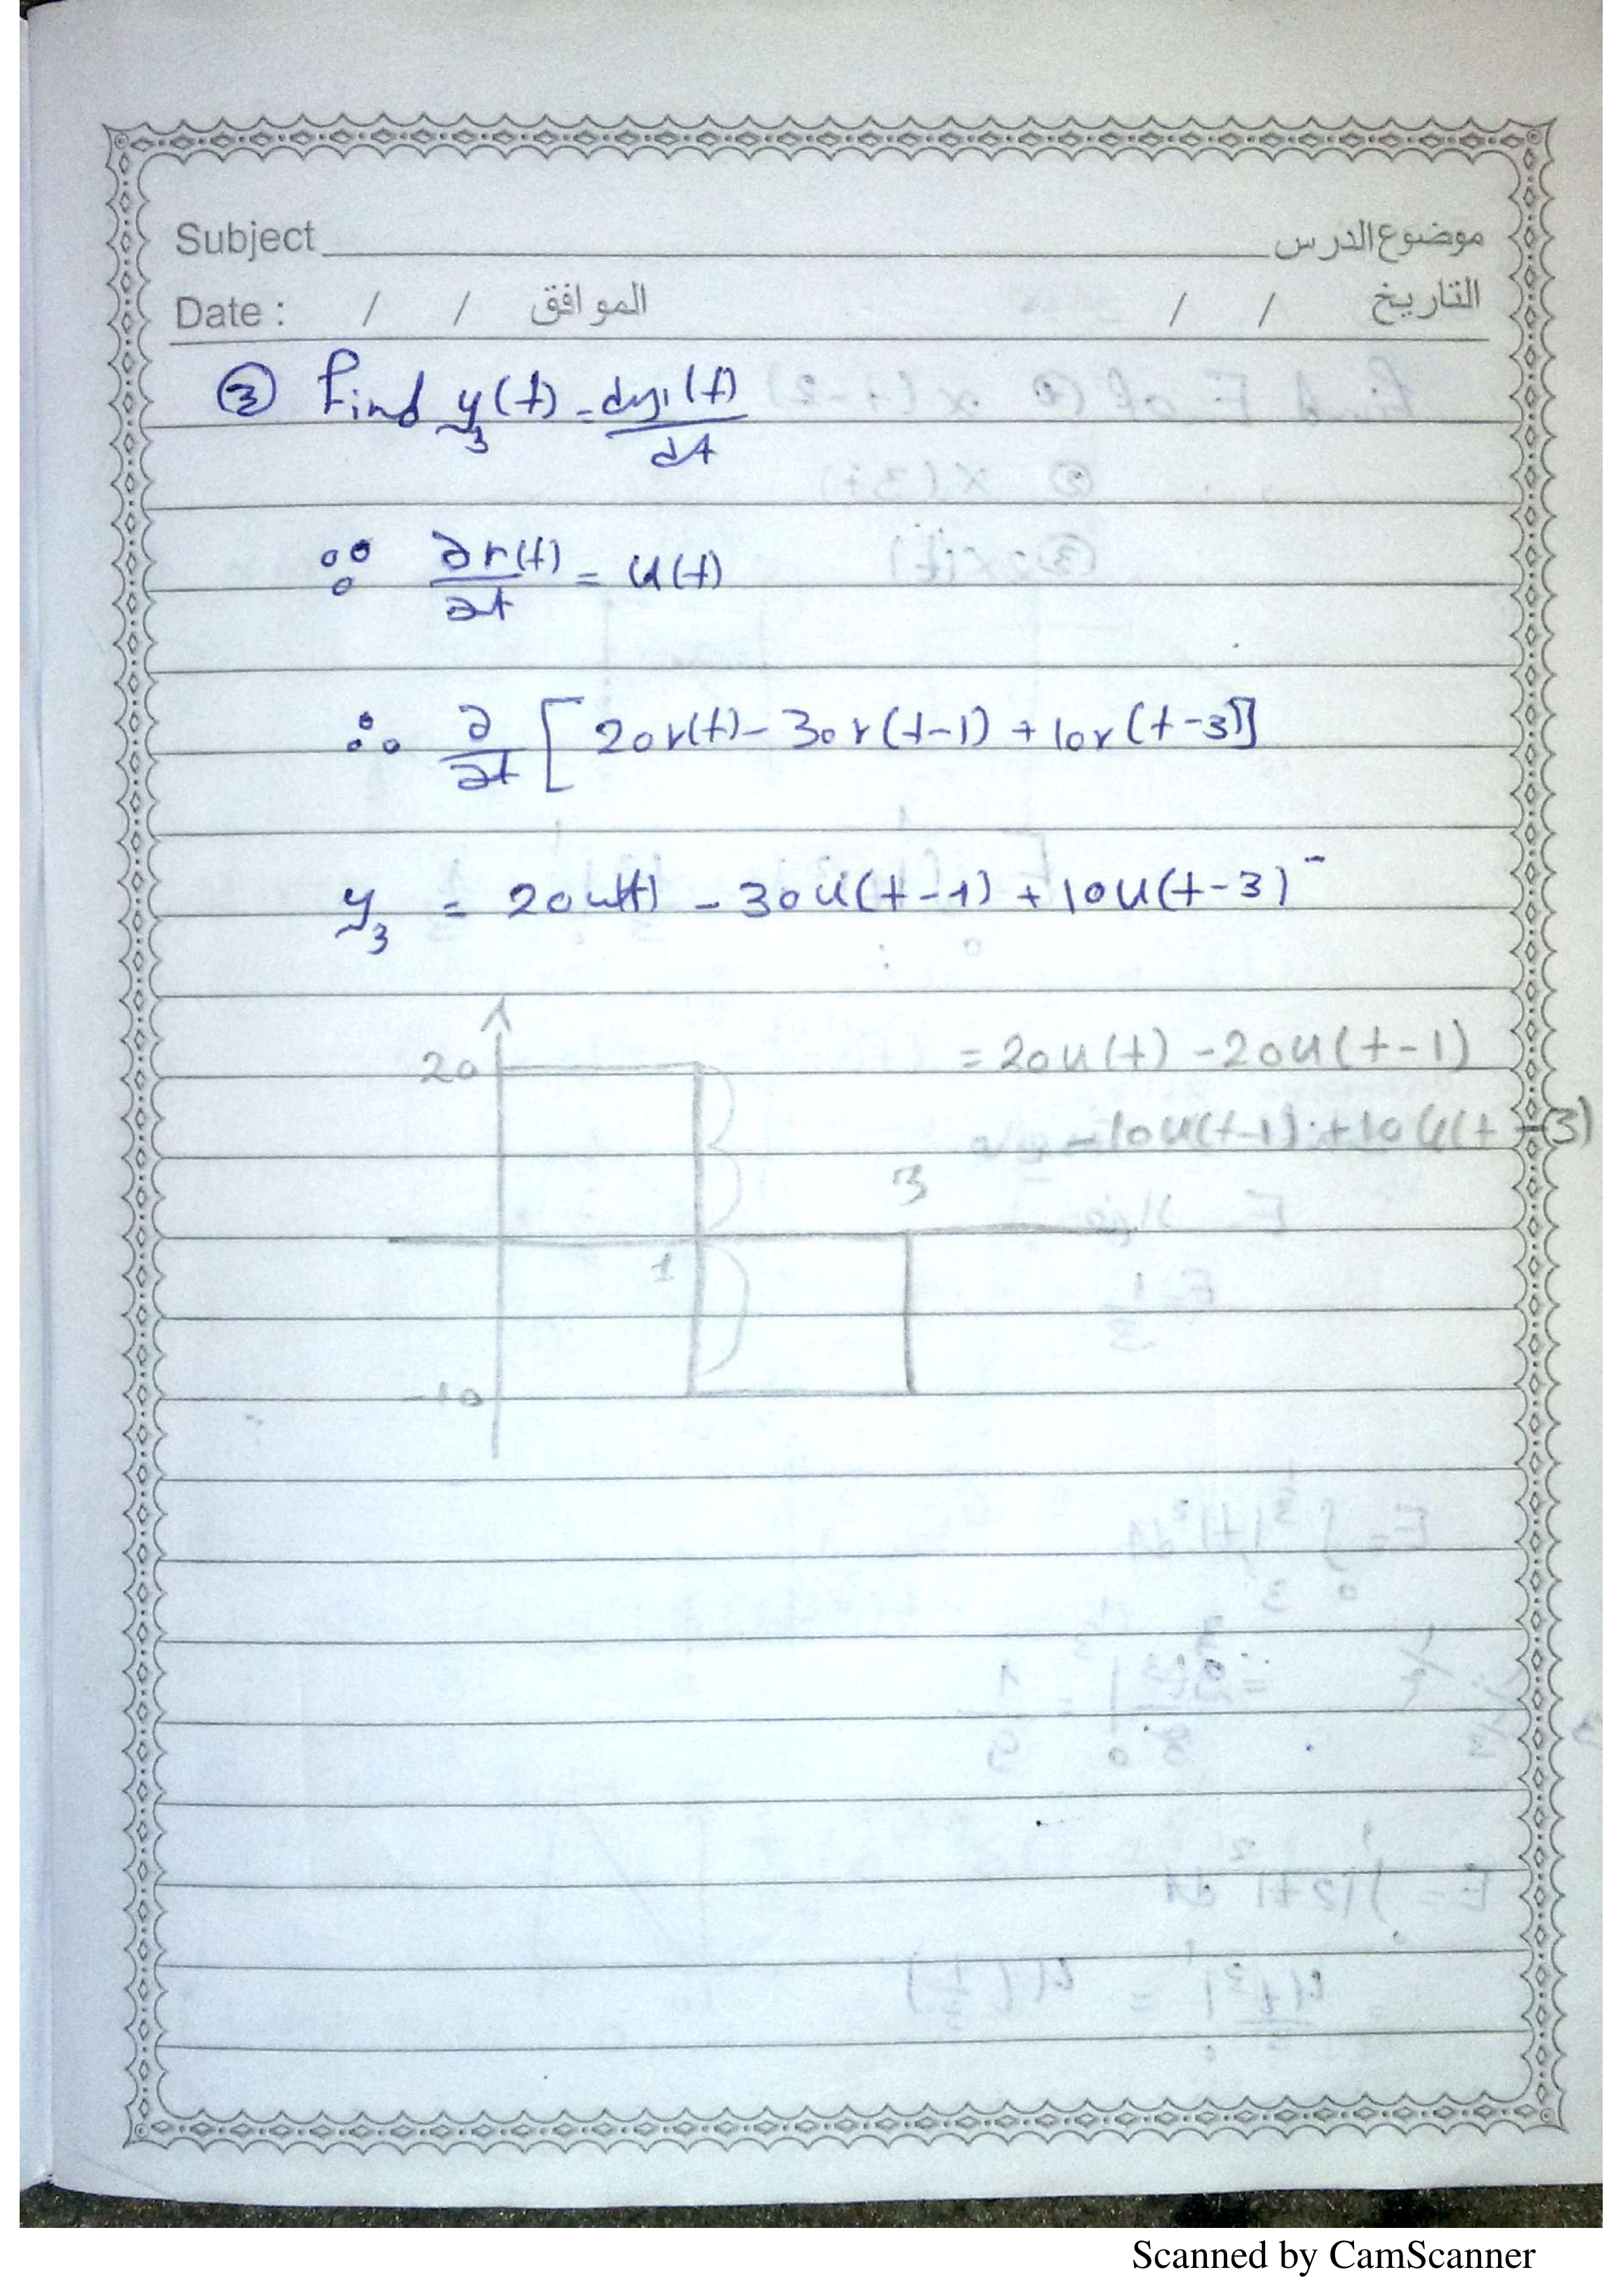 Subject موضوع الدرس
Date : / / الموافق / / التاريخ
③ Find y₃(t) = dy₁(t)/dt
∵ ∂r(t)/∂t = u(t)
∴ ∂/∂t [20r(t) - 30r(t-1) + 10r(t-3)]
y₃ = 20u(t) - 30u(t-1) + 10u(t-3)
20
= 20u(t) - 20u(t-1)
-10u(t-1) + 10u(t-3)
3
1
-10
Scanned by CamScanner